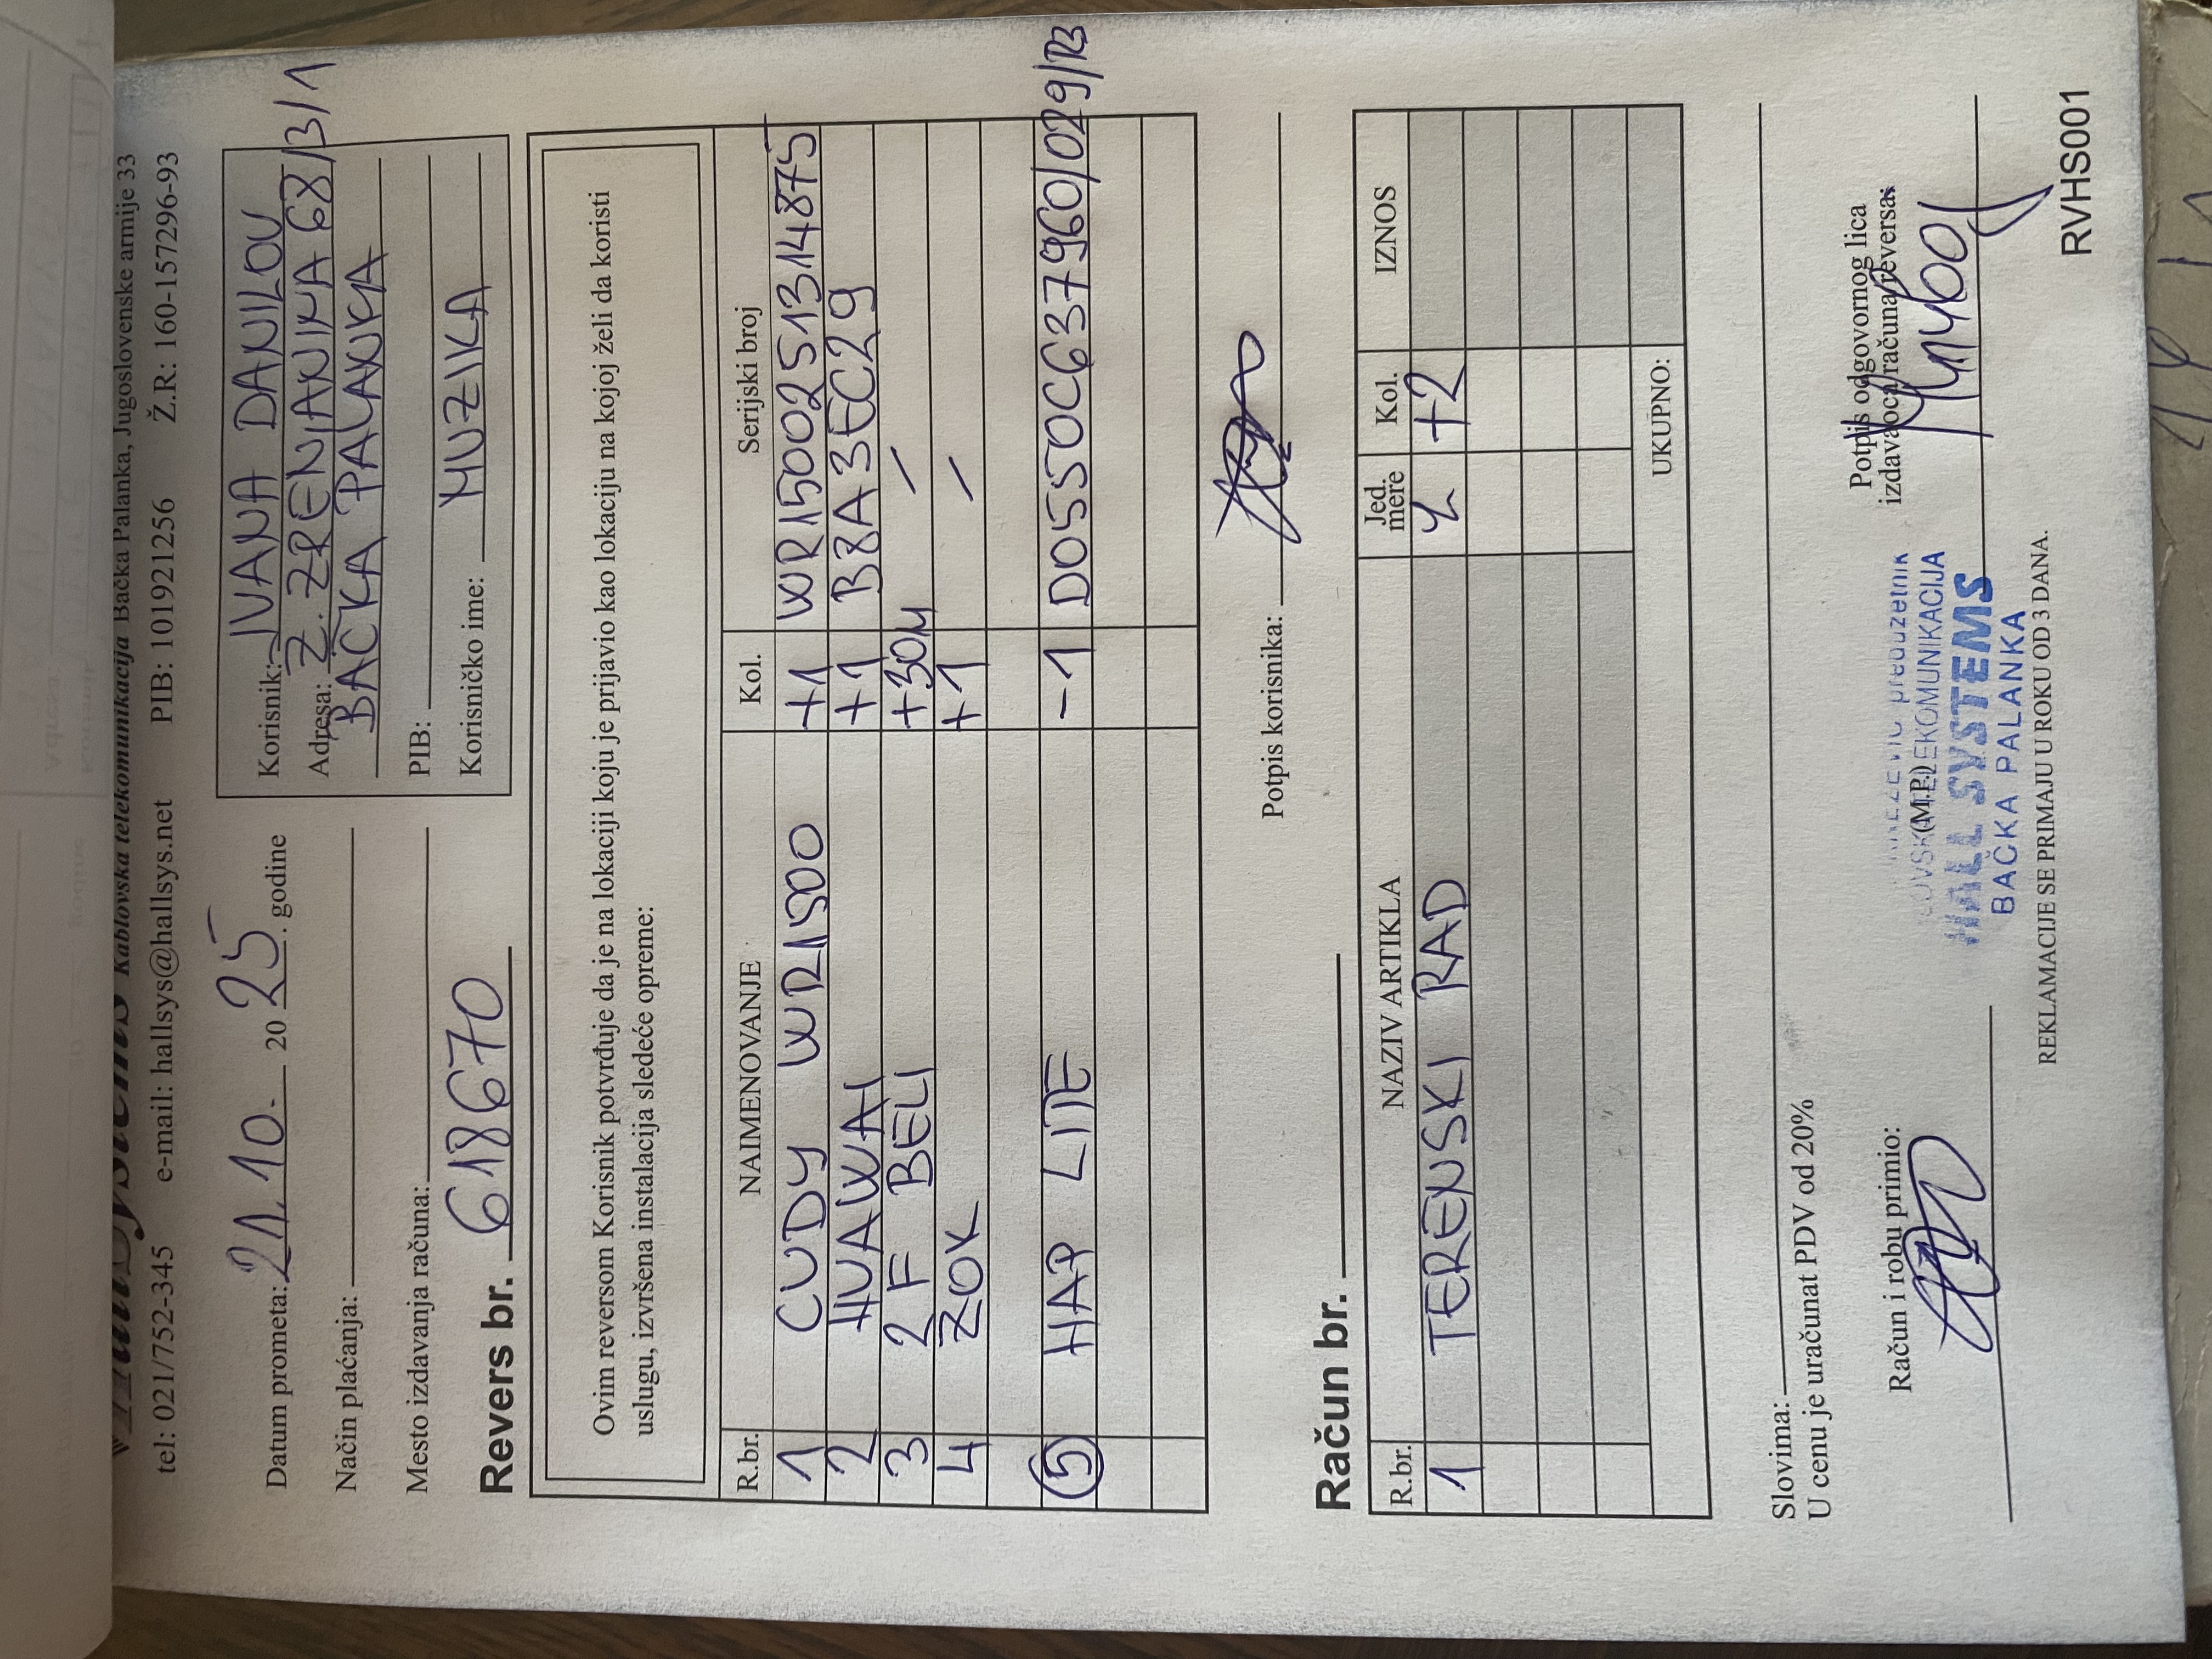 HallSystems Kablovska telekomunikacija Bačka Palanka, Jugoslovenske armije 33
tel: 021/752-345 e-mail: hallsys@hallsys.net PIB: 101921256 Ž.R: 160-157296-93
Datum prometa: 21.10- 20 25. godine
Način plaćanja:
Mesto izdavanja računa:
Korisnik: IVANA DANILOV
Adresa: Z. ZRENJANINA 68/3/1
BAČKA PALANKA
PIB:
Korisničko ime: MUZIKA
Revers br. 618670
Ovim reversom Korisnik potvrđuje da je na lokaciji koju je prijavio kao lokaciju na kojoj želi da koristi
uslugu, izvršena instalacija sledeće opreme:
R.br. NAIMENOVANJE Kol. Serijski broj
1 CUDY WR1500 +1 WR1500251314875
2 HUAWAI +1 B8A3EC29
3 2F BELI +30M /
4 ZOK +1 /
5 HAP LITE -1 D0550C637960/029/R3
Potpis korisnika:
Račun br.
R.br. NAZIV ARTIKLA Jed. mere Kol. IZNOS
1 TERENSKI RAD +2
UKUPNO:
Slovima:
U cenu je uračunat PDV od 20%
Račun i robu primio:
(M.P.)
Potpis odgovornog lica
izdavaoca računa/reversa:
preduzetnik
TELEKOMUNIKACIJA
HALL SYSTEMS
BAČKA PALANKA
REKLAMACIJE SE PRIMAJU U ROKU OD 3 DANA.
RVHS001